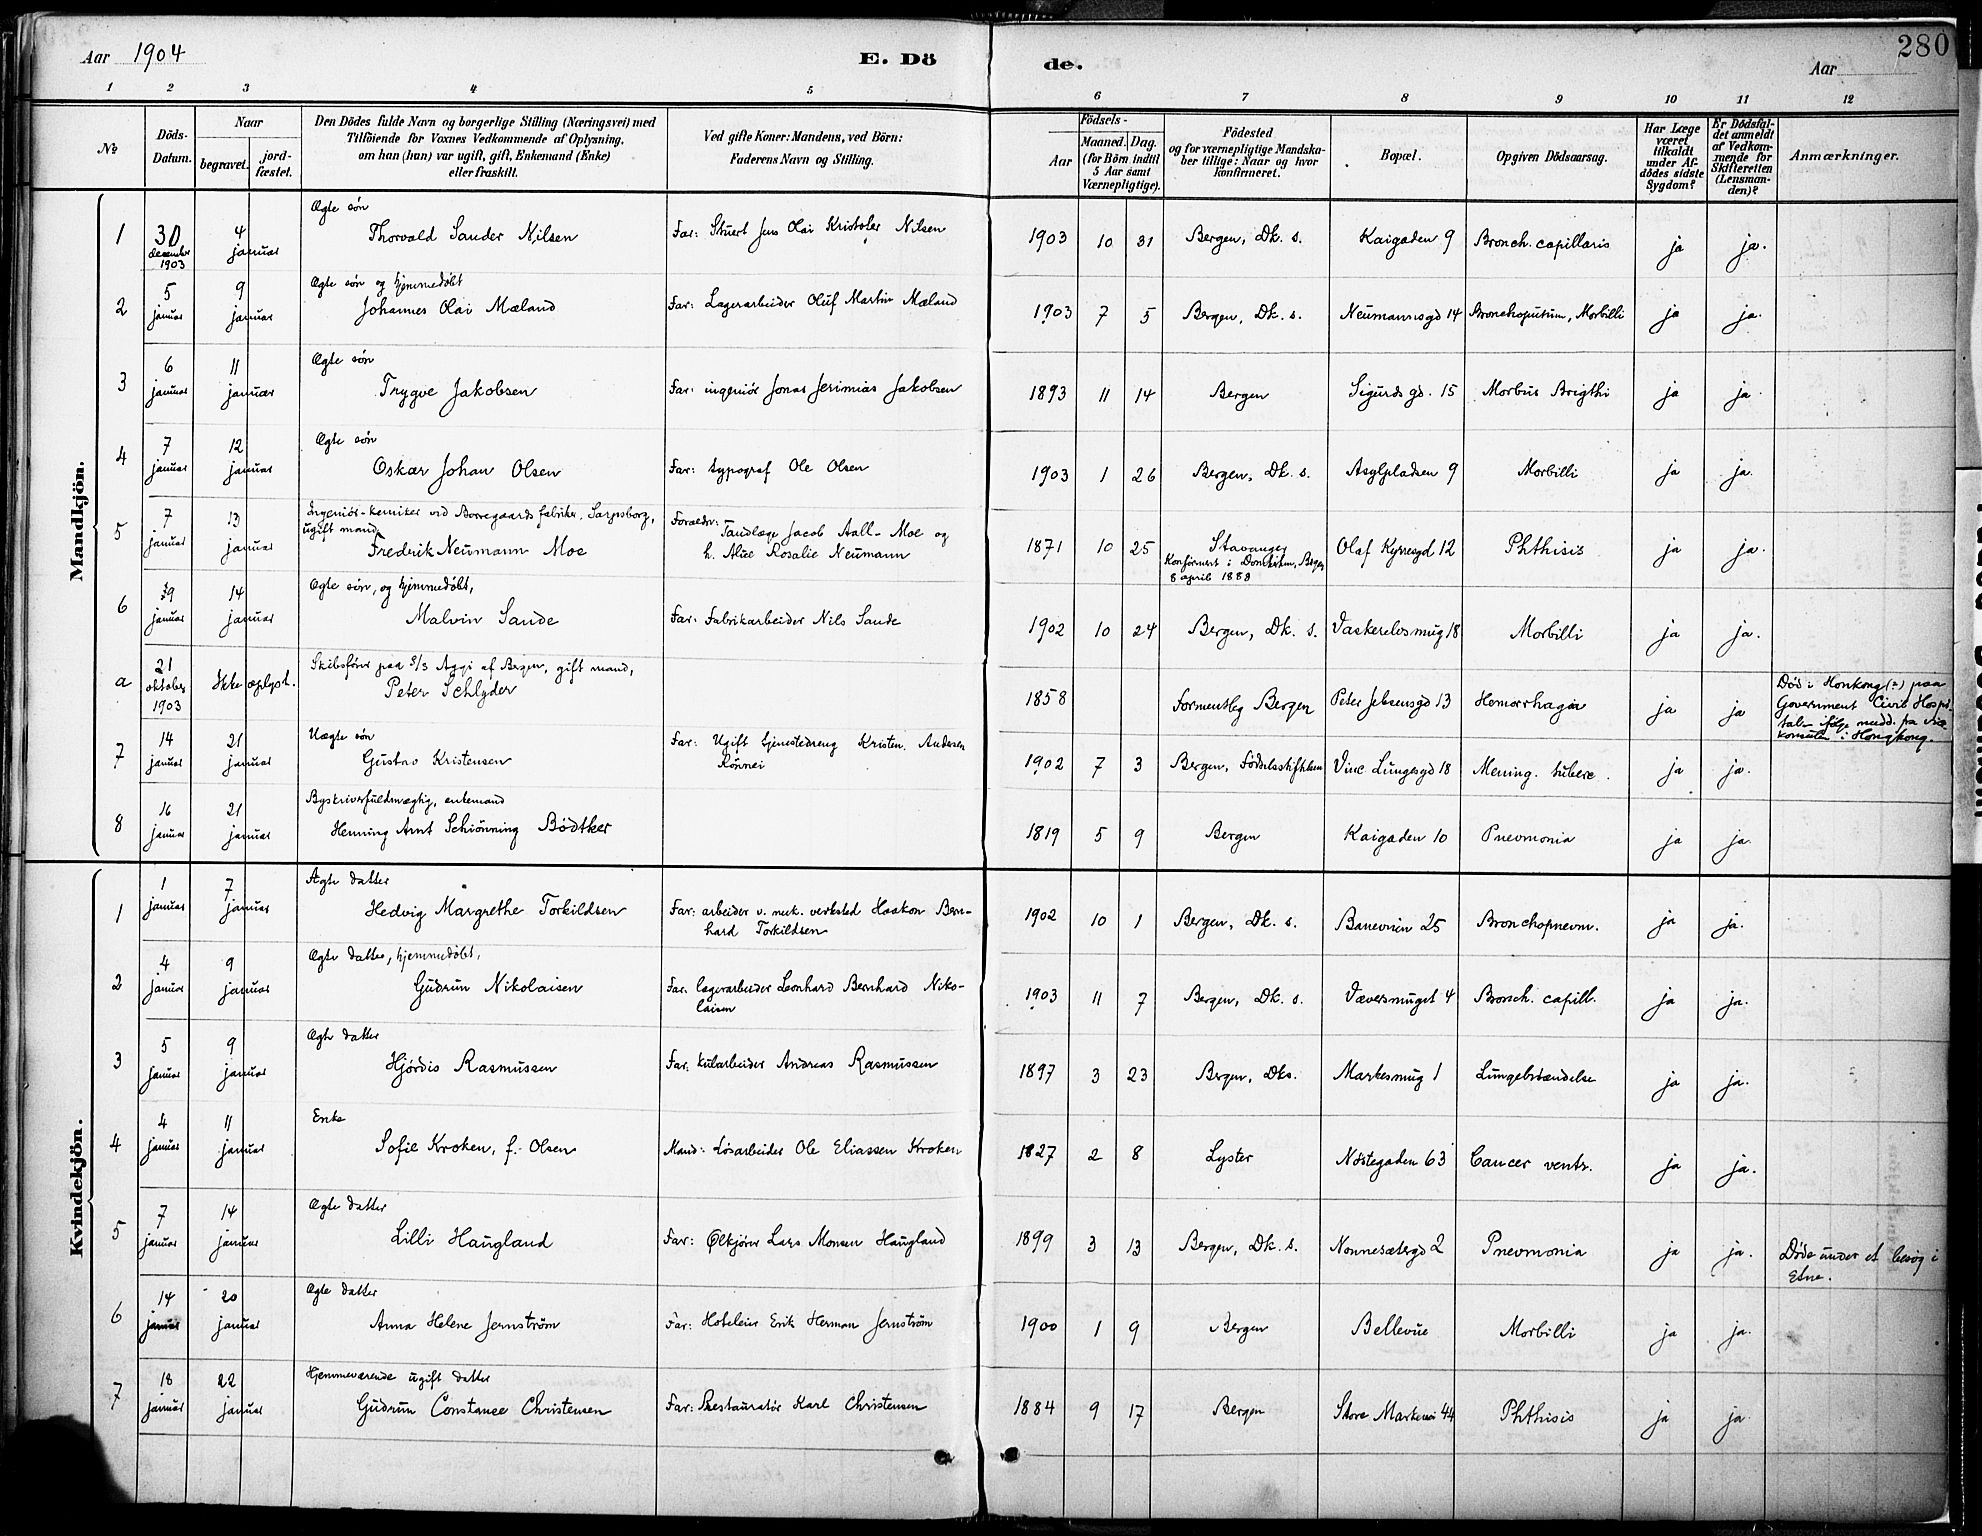 280
Aar 1904
E. Dö
de.
Aar
1 2 3 4 5 6 7 8 9 10 11 12
№
Döds-Datum.
Naar
begravet.
jord-fæstet.
Den Dödes fulde Navn og borgerlige Stilling (Næringsvei) med
Tilföiende for Voxnes Vedkommende af Oplysning,
om han (hun) var ugift, gift, Enkemand (Enke)
eller fraskilt.
Ved gifte Koner: Mandens, ved Börn:
Faderens Navn og Stilling.
Födsels-
Aar
Maaned. Dag.
(for Börn indtil
5 Aar samt
Værnepligtige).
Födested
og for værnepligtige Mandska-
ber tillige: Naar og hvor
konfirmeret.
Bopæl.
Opgiven Dödsaarsag.
Har Læge
været
tilkaldt
under Af-
dödes sidste
Sygdom?
Er Dödsfal-
det anmeldt
af Vedkom-
mende for
Skifteretten
(Lensman-
den)?
Anmærkninger.
Mandkjön.
1 30 desember 1903 4 januar Ægte søn Thorvald Sander Nilsen Far: Stuert Jens Olai Kristofer Nilsen 1903 10 31 Bergen, Dk. s. Kaigaden 9 Bronch. capillaris ja ja.
2 5 januar 9 januar Ægte søn og hjemmedøbt Johannes Olai Mæland Far: Lagerarbeider Oluf Martin Mæland 1903 7 5 Bergen, Dk. s. Neumannsgd 14 Morbilli ja ja.
3 6 januar 11 januar Ægte søn Trygve Jakobsen Far: ingeniør Jonas Jerimias Jakobsen 1893 11 14 Bergen Sigurds gd. 15 Morbus Brigthi ja ja
4 7 januar 12 januar Ægte søn Oskar Johan Olsen Far: typograf Ole Olsen 1903 1 26 Bergen, Dk. s. Asylpladsen 9 Morbilli ja ja.
5 7 januar 13 januar Ingeniør-kemiker ved Borregaards fabriker, Sarpsborg,
ugift mand Fredrik Neumann Moe Forældr: Tandlæge Jacob Aall-Moe og
h. Alice Rosalie Neumann 1871 10 25 Stavanger
Konfirmert i Domkirken, Bergen
8 april 1888 Olaf Kyrresgd 12 Phthisis ja ja.
6 9 januar 14 januar Ægte søn, og hjemmedøbt, Malvin Sande Far: Fabrikarbeider Nils Sande 1902 10 24 Bergen, Dk. s. Vaskerelvsmug 18 Morbilli ja ja.
a 21 oktober 1903 Ikke oplyst. Skibsfører paa S/S Aggi af Bergen, gift mand, Peter Schlyder 1858 formentlig Bergen Peter Jebsensgd 13 Hemorrhagia ja ja Død i Honkong (?) paa
Government Civil Hospi-
tal - ifølge medd. fra vice
konsulen i Hongkong.
7 14 januar 21 januar Uægte søn Gustav Kristensen Far: Ugift tjenestedreng Kristen Andersen
Rönnei 1902 7 3 Bergen, Födselsstiftelsen Vinc Lungesgd 18 Mening. tuberc. ja ja.
8 16 januar 21 januar Byskriverfuldmægtig, enkemand Henning Arnt Schiönning Bödtker 1819 5 9 Bergen Kaigaden 10 Pnevmonia ja ja.
Kvindekjön.
1 1 januar 7 januar Ægte datter Hedvig Margrethe Torkildsen Far: arbeider v. mek. verksted Haakon Bern-
hard Torkildsen 1902 10 1 Bergen, Dk. s. Baneveien 25 Bronchopnevm. ja ja.
2 4 januar 9 januar Ægte datter, hjemmedøbt, Gudrun Nikolaisen Far: lagerarbeider Leonhard Bernhard Niko-
laisen 1903 11 7 Bergen, Dk. s. Væversmuget 4 Bronch. capill. ja ja.
3 5 januar 9 januar Ægte datter Hjördis Rasmussen Far: kularbeider Andreas Rasmussen 1897 3 23 Bergen, Dks. Markesmug 1 Lungebetændelse ja ja.
4 4 januar 11 januar Enke Sofie Kroken, f. Olsen Mand: Løsarbeider Ole Eliassen Kroken 1827 2 8 Lyster Nöstegaden 63 Cancer ventr. ja ja.
5 7 januar 14 januar Ægte datter Lilli Haugland Far: Ølkjører Lars Monsen Haugland 1899 3 13 Bergen, Dk. s. Nonnesætergd 2 Pnevmonia ja ja. Døde under et besøg i
Etne.
6 14 januar 20 januar Ægte datter Anna Helene Jernström Far: Hoteleier Erik Herman Jernström 1900 1 9 Bergen Bellevue Morbilli ja ja.
7 18 januar 22 januar Hjemmeværende ugift datter Gudrun Constance Christensen Far: Restauratör Karl Christensen 1884 9 17 Bergen Store Markevei 44 Phthisis ja ja